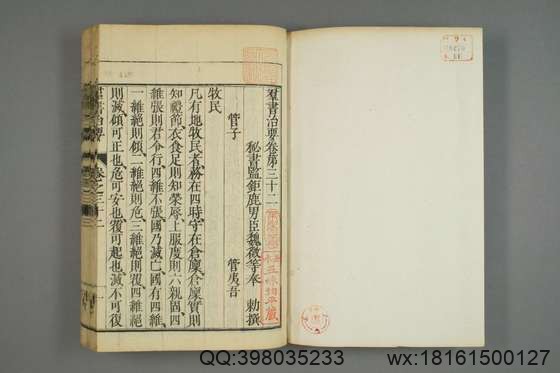 羣書治要卷第三十二
秘書監鉅鹿男臣魏徵等奉 勅撰
管子 管夷吾
牧民
凡有地牧民者務在四時守在倉廩倉廩實則
知禮節衣食足則知榮辱上服度則六親固四
維張則君令行四維不張國乃滅亡國有四維
一維絕則傾二維絕則危三維絕則覆四維絕
則滅傾可正也危可安也覆可起也滅不可復
羣書治要 卷之三十二 一
QQ:398035233
wx:18161500127